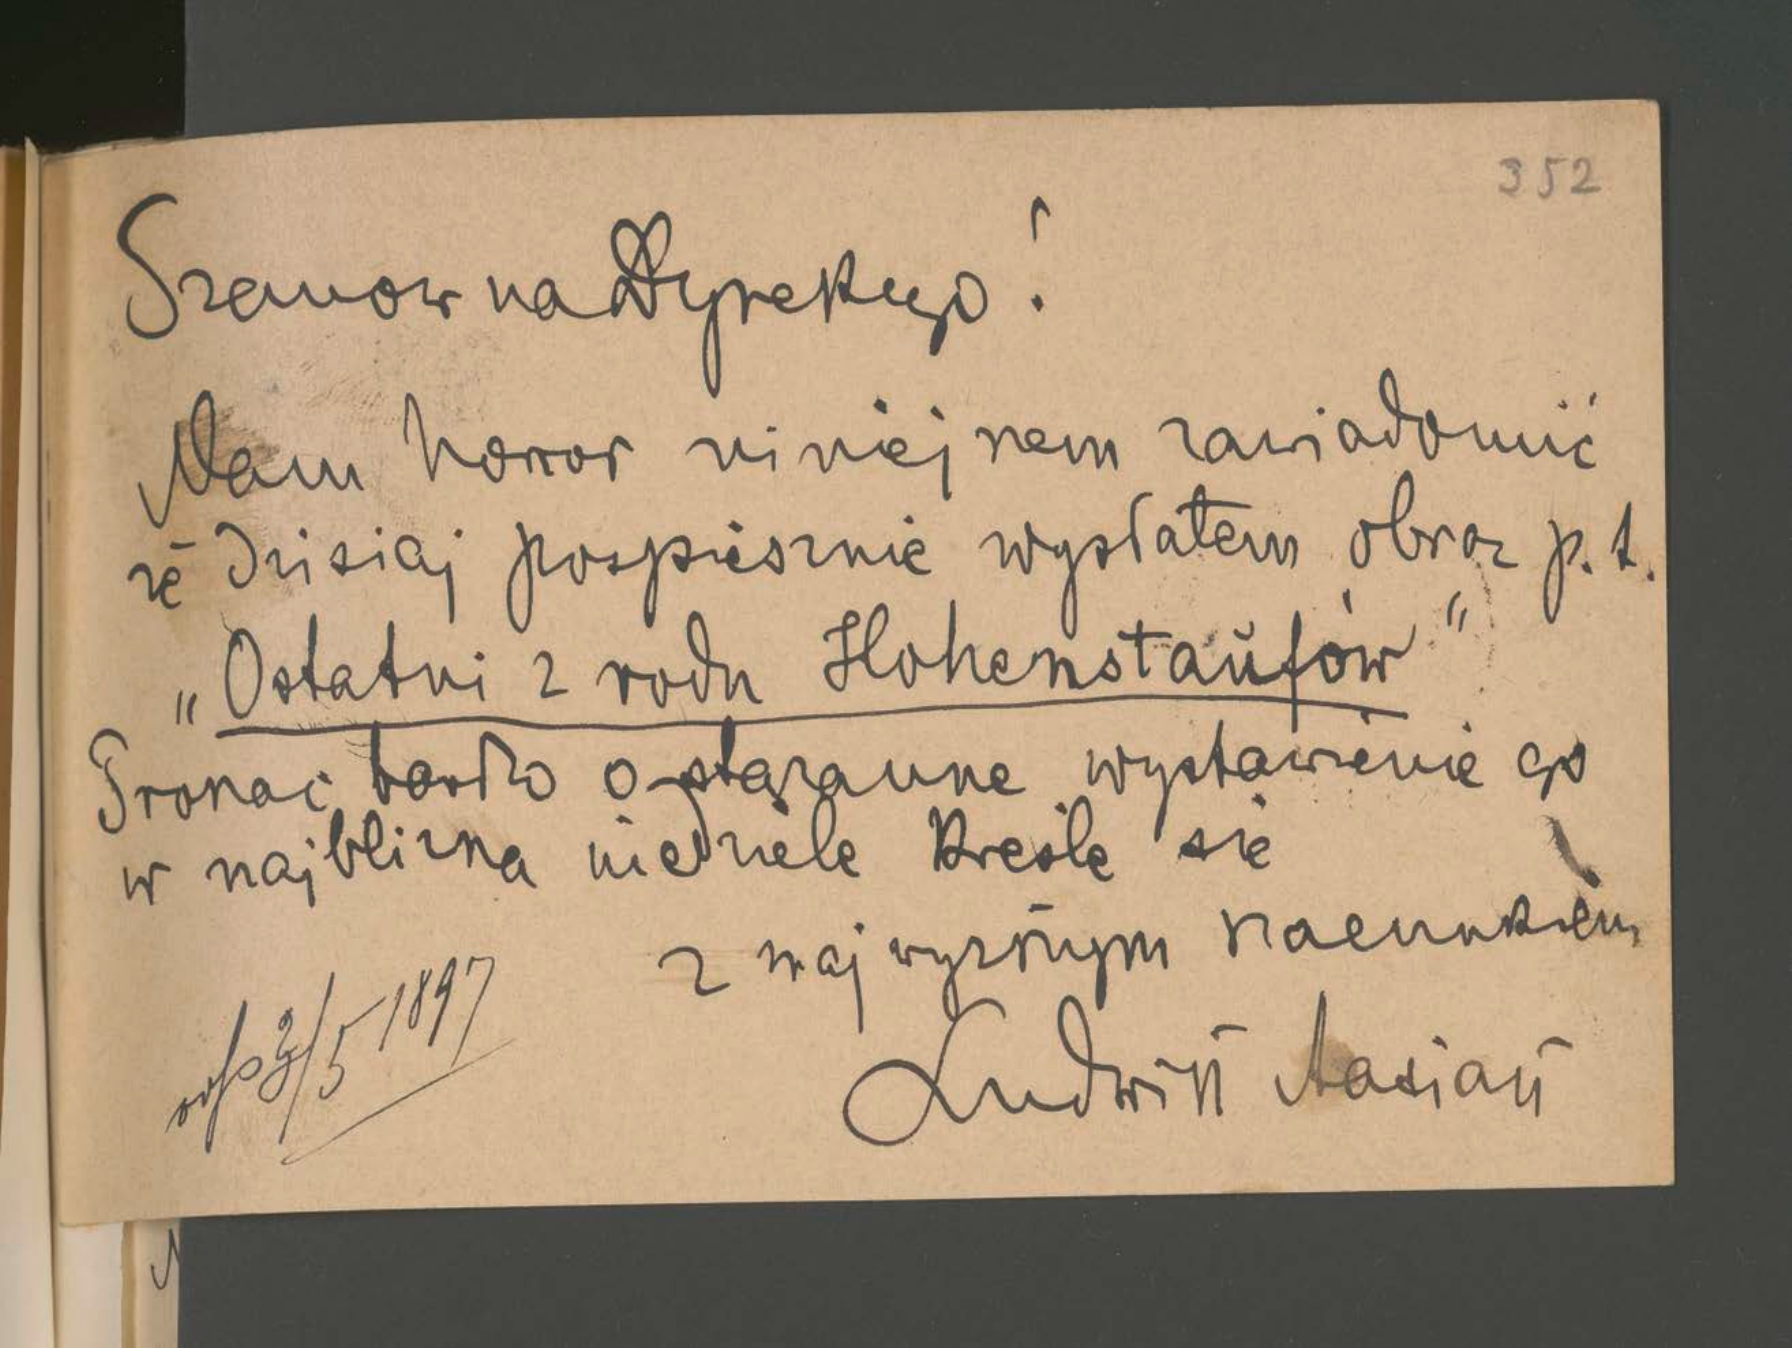 352
Szanowna Dyrekcyo!
Mam honor niniejszem zawiadomić
że dzisiaj pospiesznie wysłałem obraz p.t.
„Ostatni z rodu Hohenstaufów"
Prosząc bardzo o staranne wystawienie go
w najbliższą niedzielę kreślę się
z najwyższym szacunkiem
Ludwik Stasiak
odp 3/5 1897